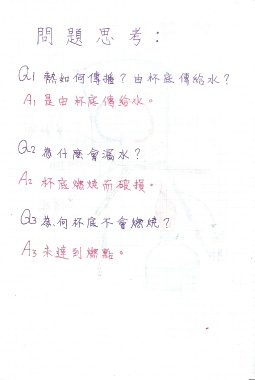 問題思考:
Q1 熱如何傳播?由杯底傳給水?
A1 是由杯底傳給水。
Q2 為什麼會漏水?
A2 杯底燃燒而破損。
Q3 為何杯底不會燃燒?
A3 未達到燃點。